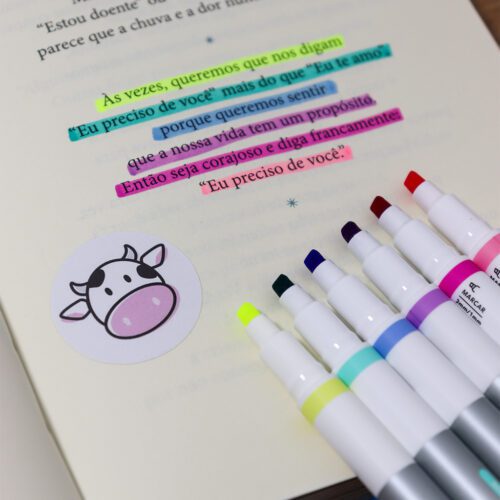 “Estou doente” ou
parece que a chuva e a dor
Às vezes, queremos que nos digam
“Eu preciso de você” mais do que “Eu te amo”,
porque queremos sentir
que a nossa vida tem um propósito.
Então seja corajoso e diga francamente:
“Eu preciso de você.”
MARCAR
2mm/1mm